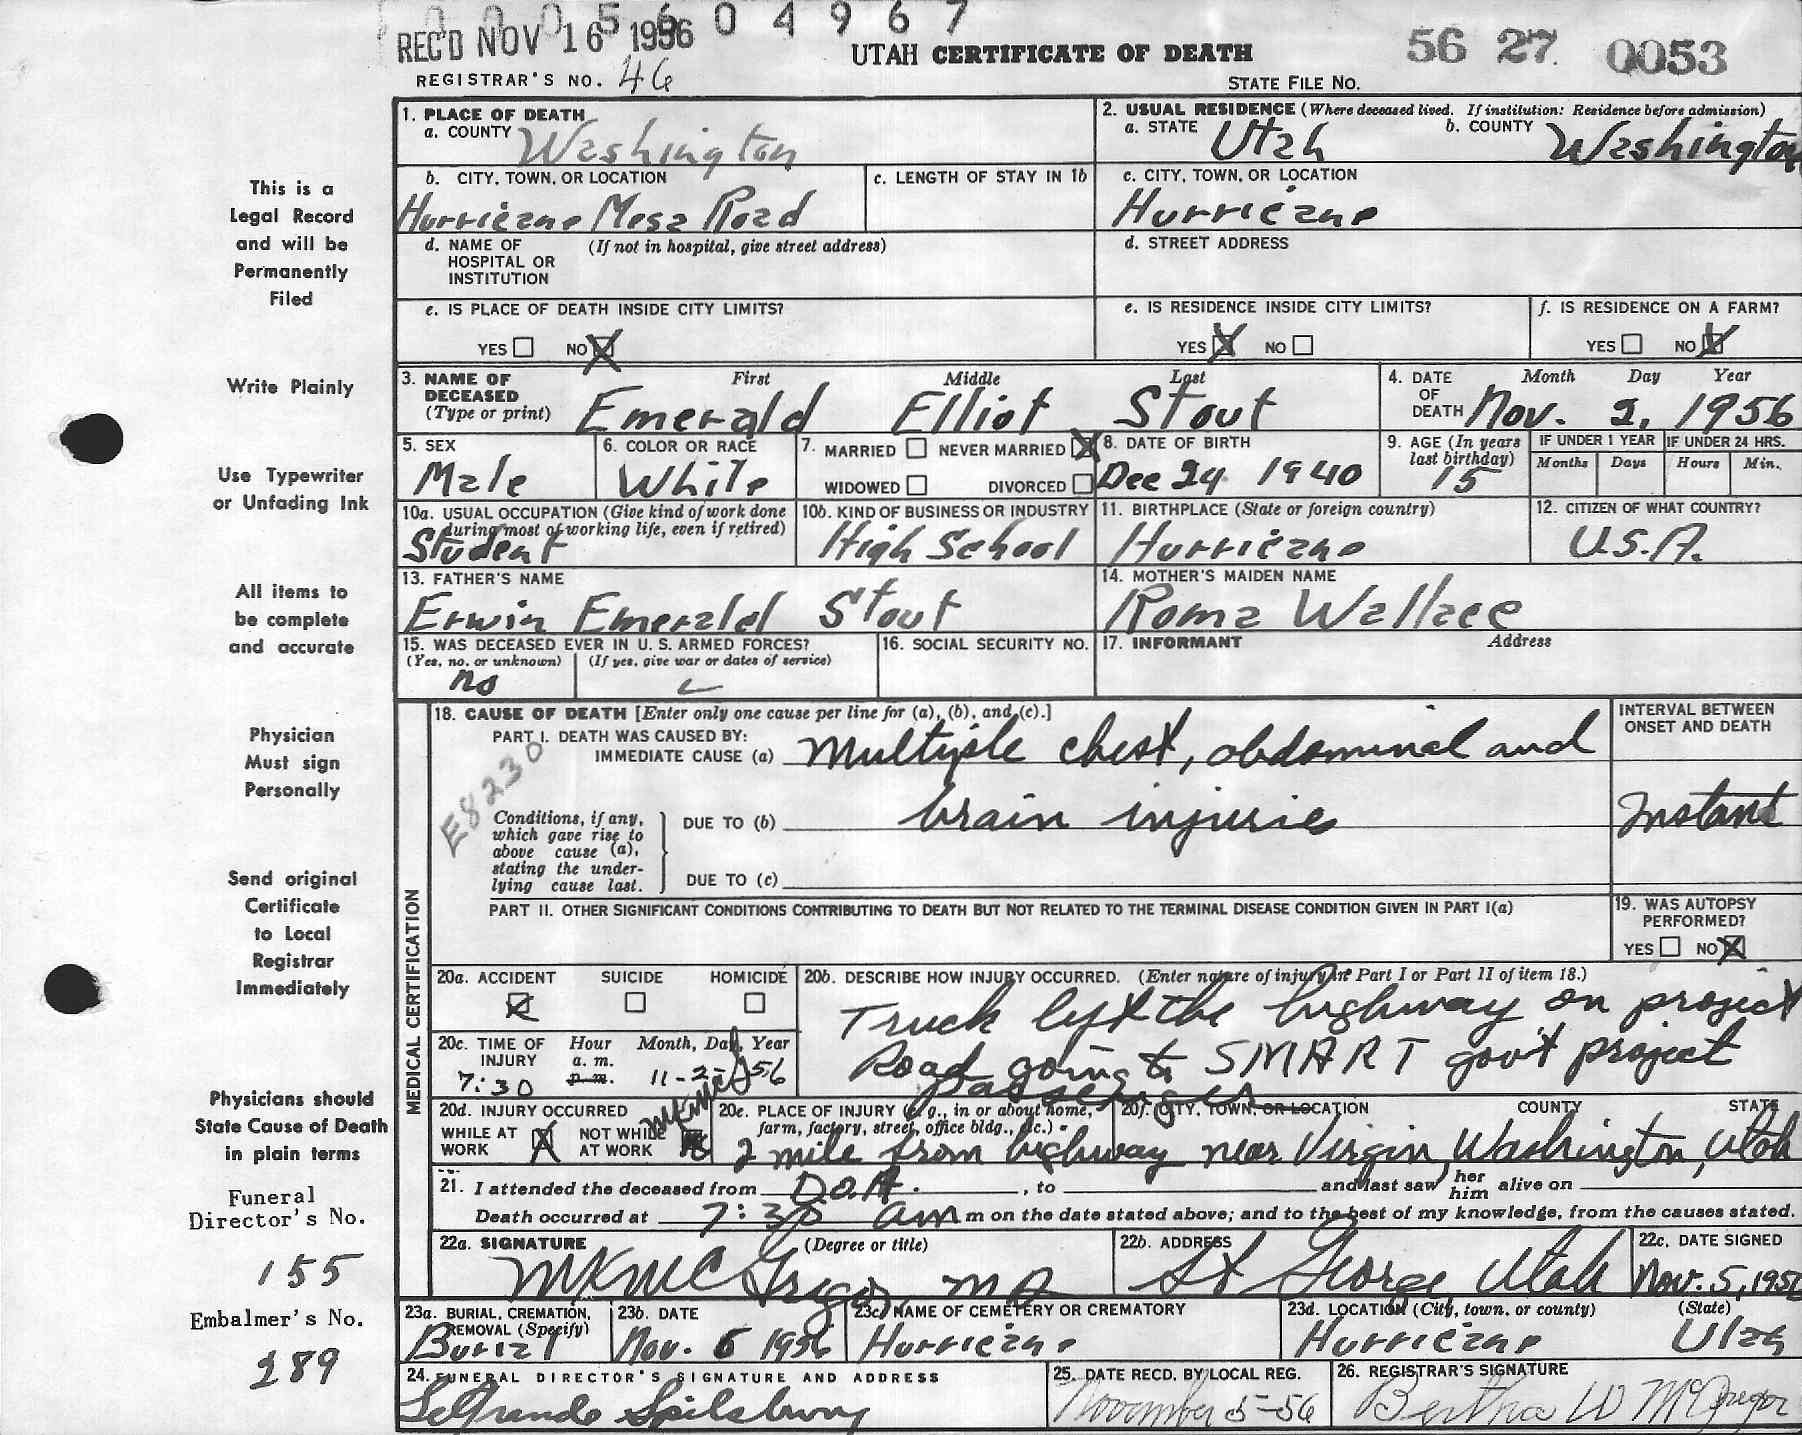 0005604967
REC'D NOV 16 1956
UTAH CERTIFICATE OF DEATH
56 27 0053
REGISTRAR'S NO. 46
STATE FILE NO.
1. PLACE OF DEATH
a. COUNTY Washington
2. USUAL RESIDENCE (Where deceased lived. If institution: Residence before admission)
a. STATE Utah b. COUNTY Washington
b. CITY, TOWN, OR LOCATION
Hurricane Mesa Road
c. LENGTH OF STAY IN 1b
c. CITY, TOWN, OR LOCATION
Hurricane
d. NAME OF HOSPITAL OR INSTITUTION (If not in hospital, give street address)
d. STREET ADDRESS
e. IS PLACE OF DEATH INSIDE CITY LIMITS?
YES NO X
e. IS RESIDENCE INSIDE CITY LIMITS?
YES X NO
f. IS RESIDENCE ON A FARM?
YES NO X
3. NAME OF DECEASED (Type or print)
First Middle Last
Emerald Elliot Stout
4. DATE OF DEATH
Month Day Year
Nov. 2, 1956
5. SEX
Male
6. COLOR OR RACE
White
7. MARRIED NEVER MARRIED X
WIDOWED DIVORCED
8. DATE OF BIRTH
Dec 24 1940
9. AGE (In years last birthday)
15
IF UNDER 1 YEAR
Months Days
IF UNDER 24 HRS.
Hours Min.
10a. USUAL OCCUPATION (Give kind of work done during most of working life, even if retired)
Student
10b. KIND OF BUSINESS OR INDUSTRY
High School
11. BIRTHPLACE (State or foreign country)
Hurricane
12. CITIZEN OF WHAT COUNTRY?
U.S.A.
13. FATHER'S NAME
Erwin Emerald Stout
14. MOTHER'S MAIDEN NAME
Roma Wallace
15. WAS DECEASED EVER IN U. S. ARMED FORCES?
(Yes, no, or unknown) (If yes, give war or dates of service)
no
16. SOCIAL SECURITY NO.
17. INFORMANT Address
MEDICAL CERTIFICATION
18. CAUSE OF DEATH [Enter only one cause per line for (a), (b), and (c).]
PART I. DEATH WAS CAUSED BY:
IMMEDIATE CAUSE (a) Multiple chest, abdominal and
E8230
Conditions, if any, which gave rise to above cause (a), stating the underlying cause last.
DUE TO (b) brain injuries
DUE TO (c)
INTERVAL BETWEEN ONSET AND DEATH
Instant
PART II. OTHER SIGNIFICANT CONDITIONS CONTRIBUTING TO DEATH BUT NOT RELATED TO THE TERMINAL DISEASE CONDITION GIVEN IN PART I(a)
19. WAS AUTOPSY PERFORMED?
YES NO X
20a. ACCIDENT X SUICIDE HOMICIDE
20b. DESCRIBE HOW INJURY OCCURRED. (Enter nature of injury in Part I or Part II of item 18.)
Truck left the highway on project
Road going to SMART gov't project
passenger
20c. TIME OF INJURY
Hour a. m. p. m. Month, Day, Year
7:30 11-2-56
20d. INJURY OCCURRED
WHILE AT WORK X NOT WHILE AT WORK
MKMcG
20e. PLACE OF INJURY (e. g., in or about home, farm, factory, street, office bldg., etc.)
20f. CITY, TOWN, OR LOCATION COUNTY STATE
2 mile from highway near Virgin, Washington, Utah
21. I attended the deceased from D.O.A. , to and last saw her him alive on
Death occurred at 7:30 am m on the date stated above; and to the best of my knowledge, from the causes stated.
22a. SIGNATURE (Degree or title)
MKMcGregor, MD
22b. ADDRESS
St George Utah
22c. DATE SIGNED
Nov. 5, 1956
23a. BURIAL, CREMATION, REMOVAL (Specify)
Burial
23b. DATE
Nov. 5 1956
23c. NAME OF CEMETERY OR CREMATORY
Hurricane
23d. LOCATION (City, town, or county) (State)
Hurricane Utah
24. FUNERAL DIRECTOR'S SIGNATURE AND ADDRESS
LaGrande Spilsbury
25. DATE RECD. BY LOCAL REG.
November 5-56
26. REGISTRAR'S SIGNATURE
Bertha W McGregor
This is a
Legal Record
and will be
Permanently
Filed
Write Plainly
Use Typewriter
or Unfading Ink
All items to
be complete
and accurate
Physician
Must sign
Personally
Send original
Certificate
to Local
Registrar
Immediately
Physicians should
State Cause of Death
in plain terms
Funeral
Director's No.
155
Embalmer's No.
289